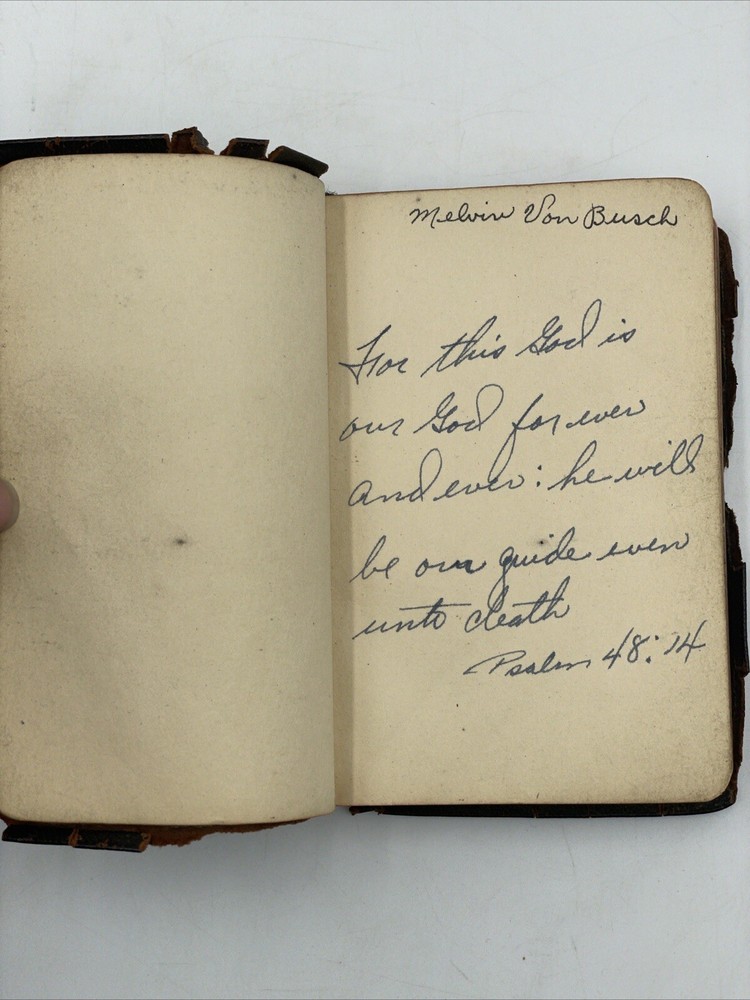 Melvin Von Busch
For this God is
our God for ever
and ever: he will
be our guide even
unto death
Psalm 48:14